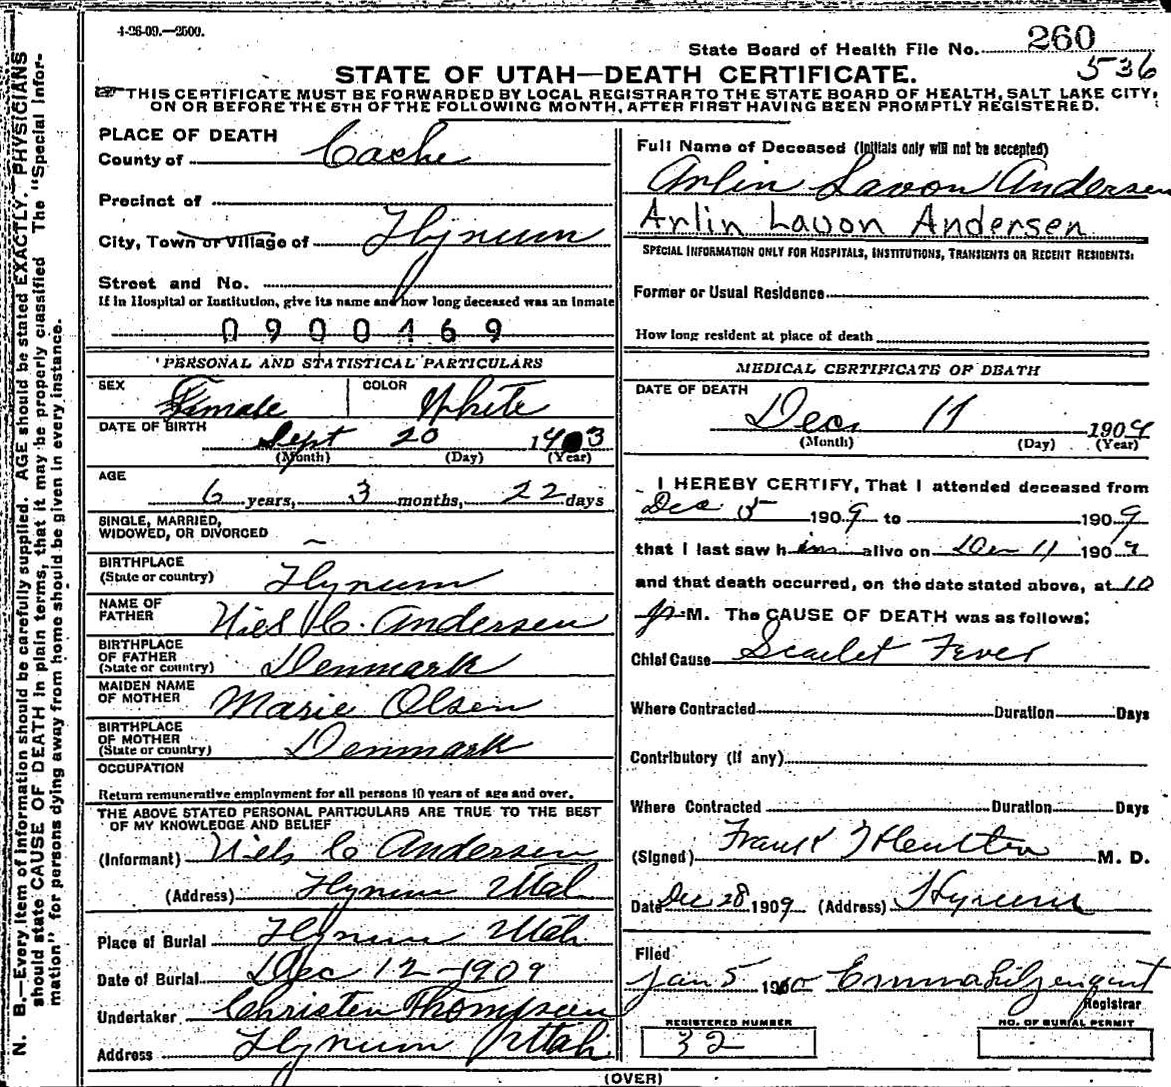 4-26-09.—2500.
State Board of Health File No. 260
536
STATE OF UTAH—DEATH CERTIFICATE.
THIS CERTIFICATE MUST BE FORWARDED BY LOCAL REGISTRAR TO THE STATE BOARD OF HEALTH, SALT LAKE CITY,
ON OR BEFORE THE 5TH OF THE FOLLOWING MONTH, AFTER FIRST HAVING BEEN PROMPTLY REGISTERED.
N. B.—Every item of information should be carefully supplied. AGE should be stated EXACTLY. PHYSICIANS
should state CAUSE OF DEATH in plain terms, that it may be properly classified The "Special Infor-
mation" for persons dying away from home should be given in every instance.
PLACE OF DEATH
County of Cache
Precinct of
City, Town or Village of Hyrum
Street and No.
If in Hospital or Institution, give its name and how long deceased was an inmate
0900469
PERSONAL AND STATISTICAL PARTICULARS
SEX Female COLOR White
DATE OF BIRTH Sept 20 1903
(Month) (Day) (Year)
AGE
6 years, 3 months, 22 days
SINGLE, MARRIED,
WIDOWED, OR DIVORCED
BIRTHPLACE
(State or country) Hyrum
NAME OF
FATHER Niels C. Andersen
BIRTHPLACE
OF FATHER
(State or country) Denmark
MAIDEN NAME
OF MOTHER Marie Olsen
BIRTHPLACE
OF MOTHER
(State or country) Denmark
OCCUPATION
Return remunerative employment for all persons 10 years of age and over.
THE ABOVE STATED PERSONAL PARTICULARS ARE TRUE TO THE BEST
OF MY KNOWLEDGE AND BELIEF
(Informant) Niels C Andersen
(Address) Hyrum Utah
Place of Burial Hyrum Utah
Date of Burial Dec 12-1909
Undertaker Christen Thompsen
Address Hyrum Utah
Full Name of Deceased (Initials only will not be accepted)
Arlin Lavon Andersen
Arlin Lavon Andersen
SPECIAL INFORMATION ONLY FOR HOSPITALS, INSTITUTIONS, TRANSIENTS OR RECENT RESIDENTS:
Former or Usual Residence
How long resident at place of death
MEDICAL CERTIFICATE OF DEATH
DATE OF DEATH
Dec 11 1909
(Month) (Day) (Year)
I HEREBY CERTIFY, That I attended deceased from
Dec 5 1909 to 1909
that I last saw him alive on Dec 11 1909
and that death occurred, on the date stated above, at 10
p M. The CAUSE OF DEATH was as follows:
Chief Cause Scarlet Fever
Where Contracted Duration Days
Contributory (if any)
Where Contracted Duration Days
(Signed) Frank M. D.
Date Dec 28 1909 (Address) Hyrum
Filed
Jan 5 1910 Emma Liljenquist
Registrar
REGISTERED NUMBER
32
NO. OF BURIAL PERMIT
(OVER)